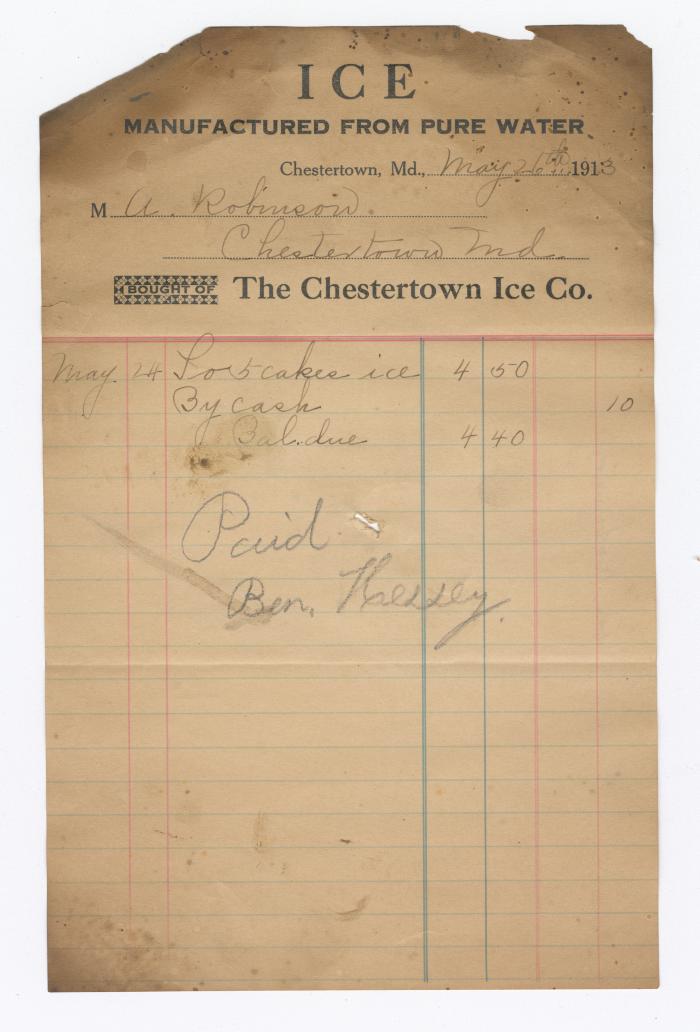 ICE
MANUFACTURED FROM PURE WATER
Chestertown, Md., May 26th 1913
M A. Robinson.
Chestertown Md.
BOUGHT OF The Chestertown Ice Co.
May 24 To 5 cakes ice 4 50
By cash 10
Bal. due 4 40
Paid
Ben.